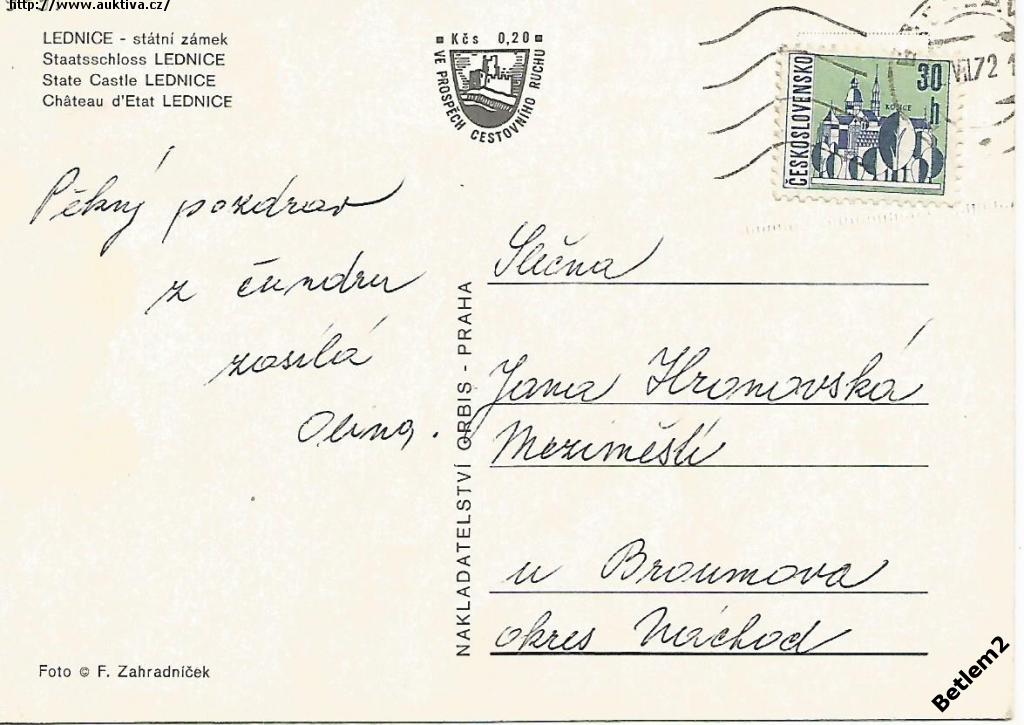 http://www.auktiva.cz/
LEDNICE - státní zámek
Staatsschloss LEDNICE
State Castle LEDNICE
Château d'Etat LEDNICE
Kčs 0,20
VE PROSPĚCH CESTOVNÍHO RUCHU
ČESKOSLOVENSKO
30 h
KOŠICE
VII.72
Pěkný pozdrav
z čundru
zasílá
Olina.
NAKLADATELSTVÍ ORBIS - PRAHA
Slečna
Jana Hronovská
Meziměstí
u Broumova
okres Náchod
Foto © F. Zahradníček
Betlem2